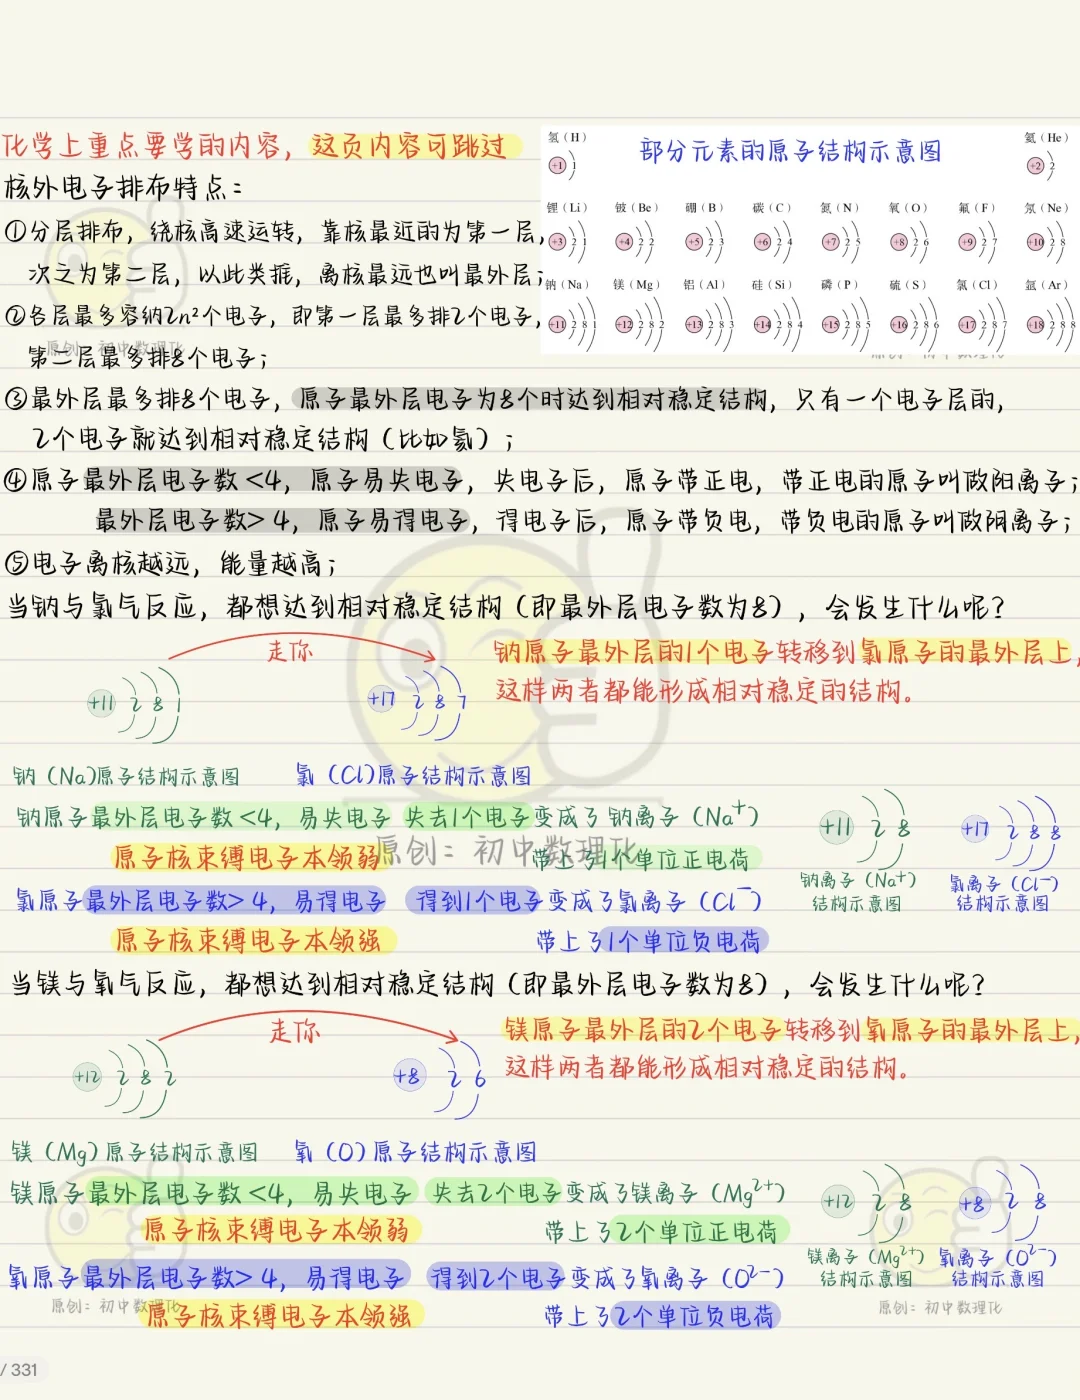 化学上重点要学的内容，这页内容可跳过
核外电子排布特点：
①分层排布，绕核高速运转，靠核最近的为第一层，
次之为第二层，以此类推，离核最远也叫最外层；
②各层最多容纳2n²个电子，即第一层最多排2个电子，
第二层最多排8个电子；
部分元素的原子结构示意图
氢（H） 氦（He）
+1 1 +2 2
锂（Li） 铍（Be） 硼（B） 碳（C） 氮（N） 氧（O） 氟（F） 氖（Ne）
+3 2 1 +4 2 2 +5 2 3 +6 2 4 +7 2 5 +8 2 6 +9 2 7 +10 2 8
钠（Na） 镁（Mg） 铝（Al） 硅（Si） 磷（P） 硫（S） 氯（Cl） 氩（Ar）
+11 2 8 1 +12 2 8 2 +13 2 8 3 +14 2 8 4 +15 2 8 5 +16 2 8 6 +17 2 8 7 +18 2 8 8
原创：初中数理化
③最外层最多排8个电子，原子最外层电子为8个时达到相对稳定结构，只有一个电子层的，
2个电子就达到相对稳定结构（比如氦）；
④原子最外层电子数<4，原子易失电子，失电子后，原子带正电，带正电的原子叫做阳离子；
最外层电子数>4，原子易得电子，得电子后，原子带负电，带负电的原子叫做阴离子；
⑤电子离核越远，能量越高；
当钠与氯气反应，都想达到相对稳定结构（即最外层电子数为8），会发生什么呢？
走你
钠原子最外层的1个电子转移到氯原子的最外层上，
这样两者都能形成相对稳定的结构。
+11 2 8 1 +17 2 8 7
钠（Na)原子结构示意图 氯（Cl)原子结构示意图
钠原子最外层电子数<4，易失电子 失去1个电子变成了钠离子（Na⁺）
原子核束缚电子本领弱 带上了1个单位正电荷
原创：初中数理化
氯原子最外层电子数>4，易得电子 得到1个电子变成了氯离子（Cl⁻）
原子核束缚电子本领强 带上了1个单位负电荷
+11 2 8 +17 2 8 8
钠离子（Na⁺） 氯离子（Cl⁻）
结构示意图 结构示意图
当镁与氧气反应，都想达到相对稳定结构（即最外层电子数为8），会发生什么呢？
走你
镁原子最外层的2个电子转移到氧原子的最外层上，
这样两者都能形成相对稳定的结构。
+12 2 8 2 +8 2 6
镁（Mg）原子结构示意图 氧（O）原子结构示意图
镁原子最外层电子数<4，易失电子 失去2个电子变成了镁离子（Mg²⁺）
原子核束缚电子本领弱 带上了2个单位正电荷
氧原子最外层电子数>4，易得电子 得到2个电子变成了氧离子（O²⁻）
原子核束缚电子本领强 带上了2个单位负电荷
+12 2 8 +8 2 8
镁离子（Mg²⁺） 氧离子（O²⁻）
结构示意图 结构示意图
原创：初中数理化 原创：初中数理化
/ 331